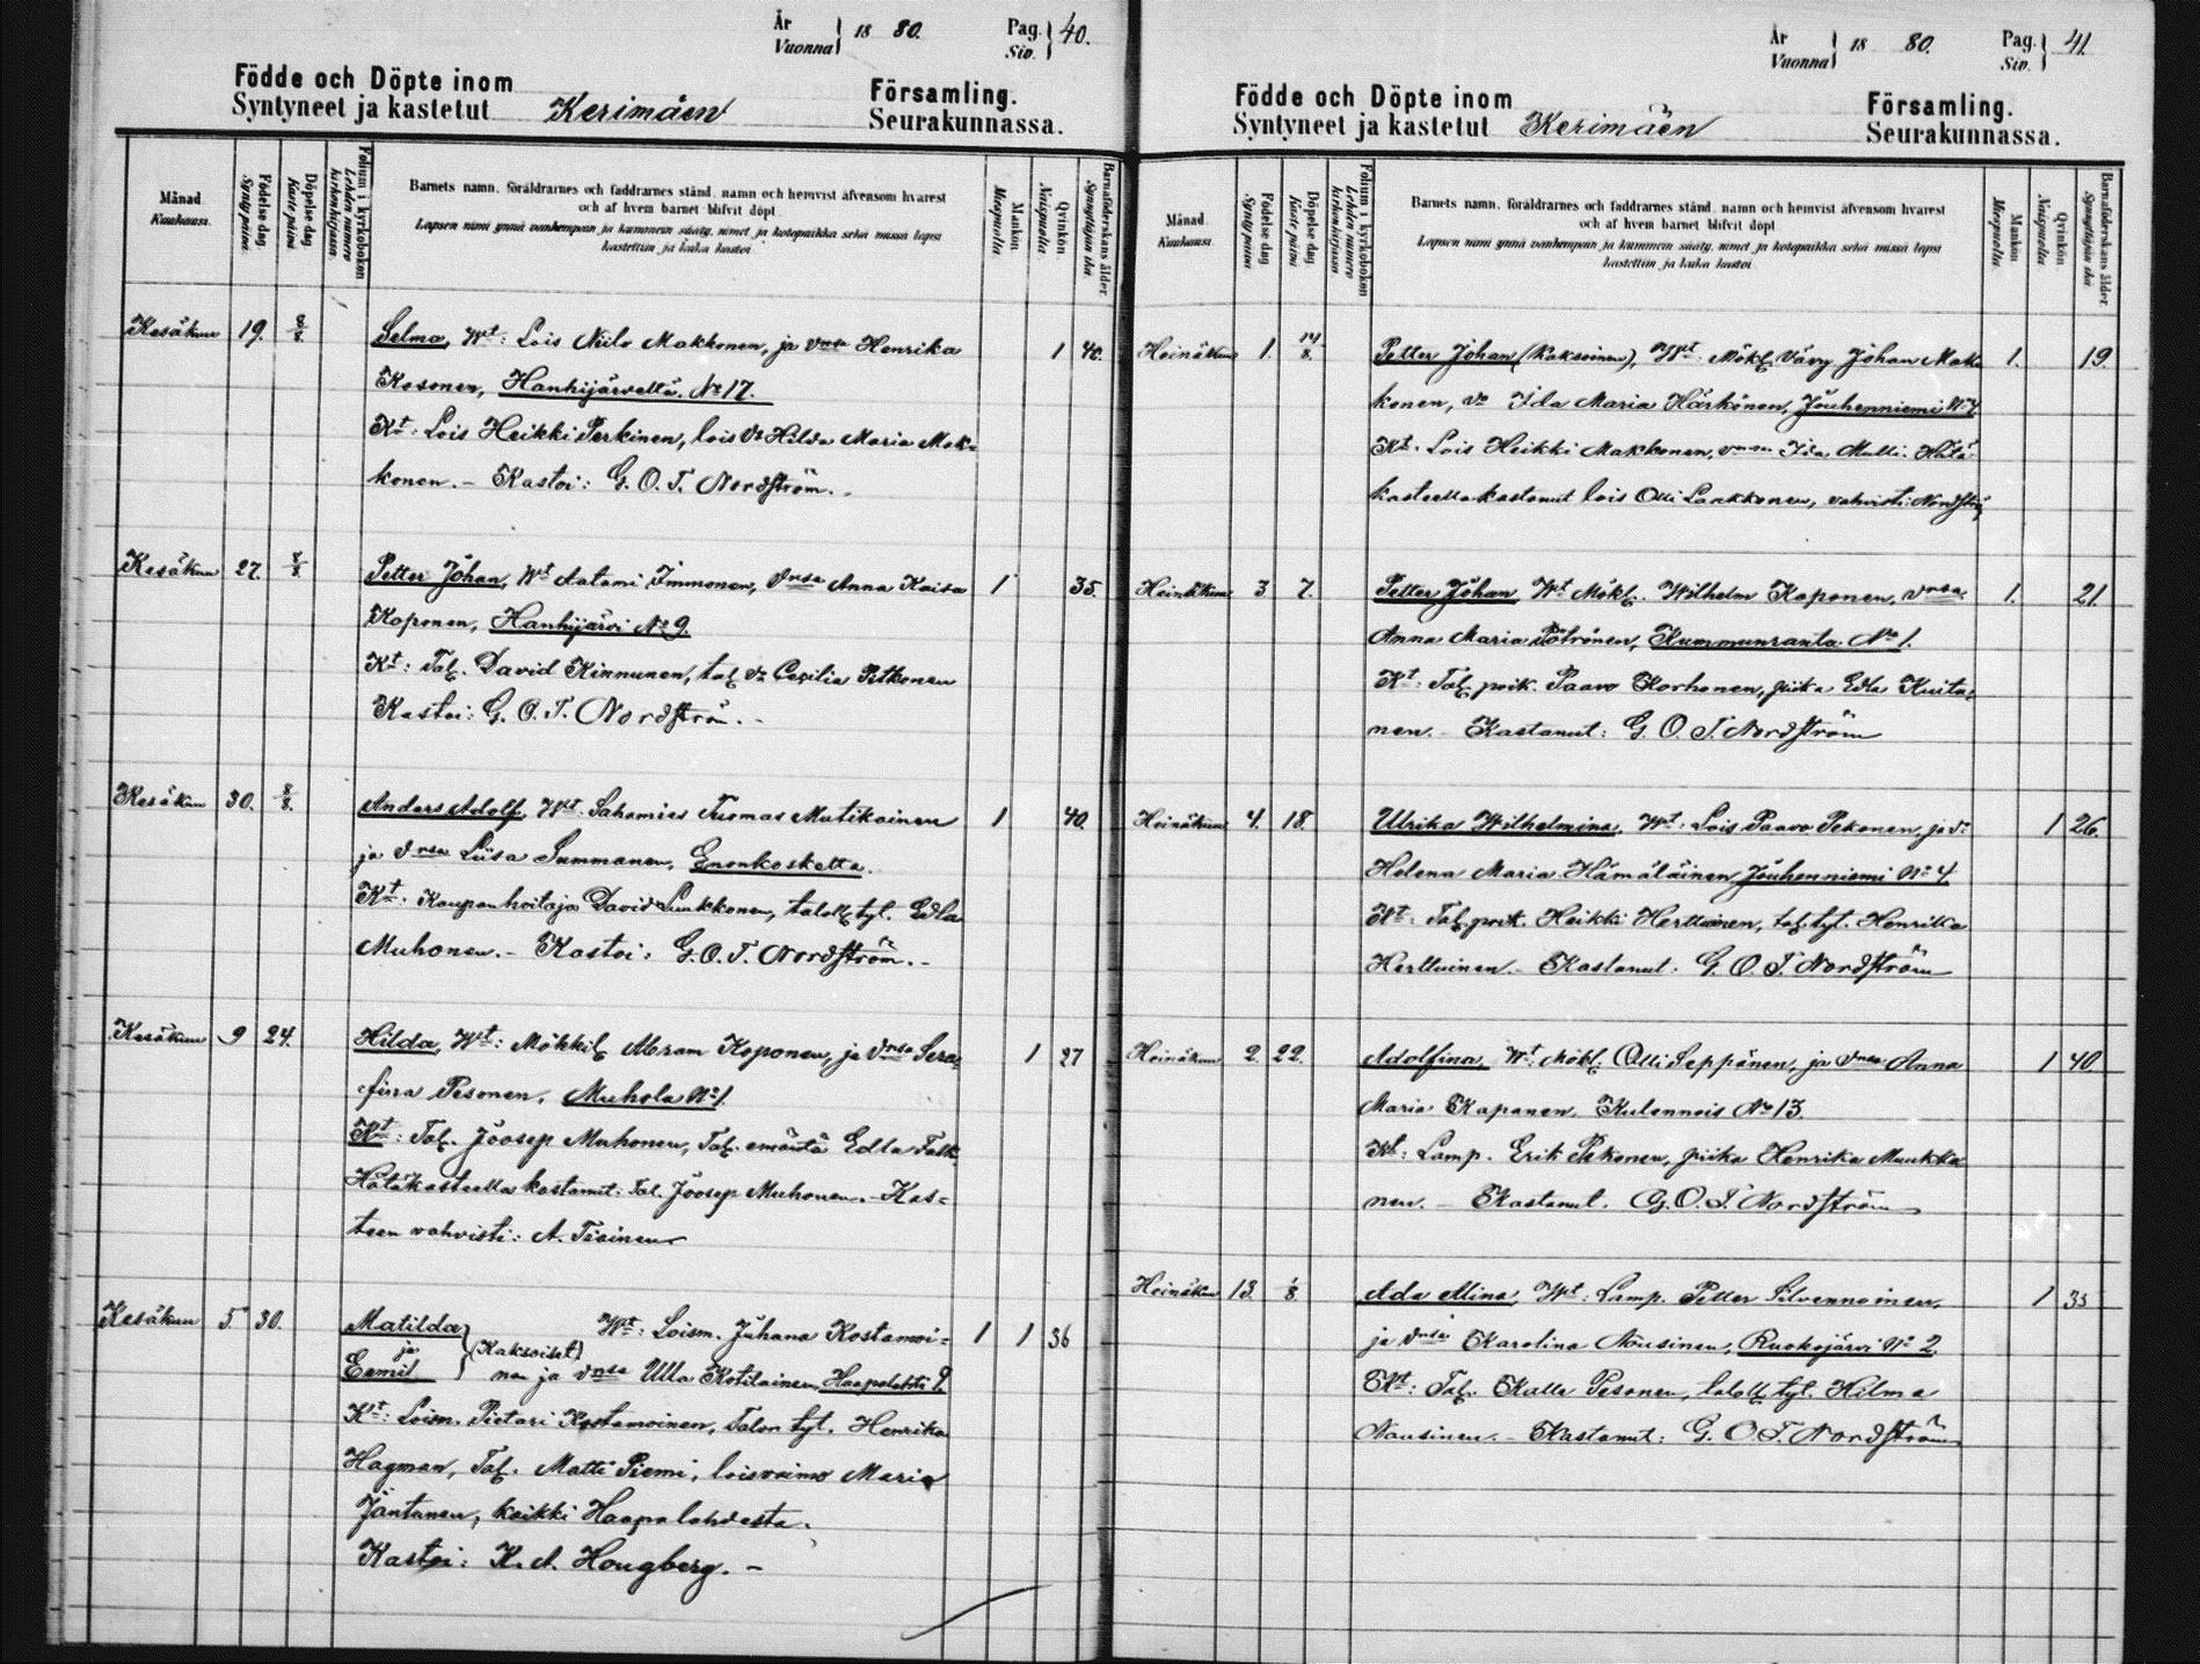 År
Vuonna } 18 80. Pag.
Siv. } 40.
Födde och Döpte inom
Syntyneet ja kastetut Kerimäen Församling.
Seurakunnassa.
Månad
Kuukausi.
Födelse dag
Synty päivä.
Döpelse dag
Kaste päivä
Folium i kyrkoboken
Lehden numero
kirkonkirjassa
Barnets namn, föräldrarnes och faddrarnes stånd, namn och hemvist äfvensom hvarest
och af hvem barnet blifvit döpt.
Lapsen nimi ynnä vanhempain ja kummein sääty, nimet ja kotopaikka sekä missä lapsi
kastettiin ja kuka kastoi
Mankön
Miespuolia
Qvinkön
Naispuolia
Barnaföderskans ålder
Synnyttäjän ikä
Kesäkuu 19. 8/8. Selma, Wt: Lois Niilo Makkonen, ja vmsa Henrika 1 40.
Kosonen, Hanhijärveltä. No 17.
Kt: Lois Heikki Perkinen, lois Vo Hilda Maria Mak=
konen. - Kastoi: G. O. T. Nordström.
Kesäkuu 27. 8/8 Petter Johan, Wt Aatami Immonen, Vmsa Anna Kaisa 1 35.
Koponen, Hanhijärvi No 9.
Kt: Tal. David Kinnunen, tal Vo Cecilia Pitkonen
Kastoi: G. O. T. Nordström. -
Kesäkuu 30. 8/8. Anders Adolf, Wt. Sahamies Tuomas Mutikainen 1 40.
ja Vmsa Liisa Summanen, Enonkoskella.
Kt. Kaupanhoitaja David Luukkonen, taloll. tyt. Edla
Muhonen. - Kastoi: G. O. T. Nordström. -
Kesäkuu 9 24. Hilda, Wt: Mökkil Abram Koponen, ja Vmsa Sera= 1 27
fina Pesonen, Muhola No 1.
Kt: Tal. Joosep Muhonen, Tal. emäntä Edla Falk.
Hätäkasteella kastanut: Tal. Joosep Muhonen. - Kas=
teen vahvisti: A. Tiainen
Kesäkuu 5 30. Matilda ja Eemil } (Kaksoiset) Wt: Loism. Juhana Kostamoi= 1 1 36
nen ja vmsa Ulla Kotilainen, Haapalahti 9.
Kt: Loism. Pietari Kostamoinen, Talon tyt. Henrika
Hagman, Tal. Matti Piemi, loisvaimo Maria
Jäntunen, kaikki Haapalahdesta.
Kastoi: K. A. Hougberg. -
År
Vuonna } 18 80. Pag.
Siv. } 41.
Födde och Döpte inom
Syntyneet ja kastetut Kerimäen Församling.
Seurakunnassa.
Månad
Kuukausi
Födelse dag
Synty päivä
Döpelse dag
Kaste päivä
Folium i kyrkoboken
Lehden numero
kirkonkirjassa
Barnets namn, föräldrarnes och faddrarnes stånd, namn och hemvist äfvensom hvarest
och af hvem barnet blifvit döpt
Lapsen nimi ynnä vanhempain ja kummein sääty, nimet ja kotopaikka sekä missä lapsi
kastettiin ja kuka kastoi
Mankön
Miespuolia
Qvinkön
Naispuolia
Barnaföderskans ålder
Synnyttäjän ikä
Heinäkuu 1. 14/8. Petter Johan (kaksoinen), Wt: Mökl. vävy Johan Mak= 1. 19.
konen, vo Ida Maria Härkönen, Jouhenniemi No 4.
Kt. Lois Heikki Makkonen, vmsa Ida Matti. Hätä=
kasteella kastanut lois Olli Laukkonen, vahvisti: Nordström
Heinäkuu 3 7. Petter Johan Wt Mökl. Wilhelm Kaponen, vmsa 1. 21.
Anna Maria Pötrönen, Kummunranta No 1.
Kt: Tal. poik. Paavo Korhonen, piika Edla Kuita=
nen. - Kastanut: G. O. T. Nordström
Heinäkuu 4. 18. Ulrika Wilhelmina, Wt: Lois Paavo Pekonen, ja Vo 1 26.
Helena Maria Hämäläinen Jouhenniemi No 4.
Kt: Tal. poik. Heikki Herttuinen, tal. tyt. Henrika
Herttuinen. - Kastanut: G. O. T. Nordström
Heinäkuu 2. 22. Adolfina, Wt Mökl. Olli Seppänen, ja Vmsa Anna 1 40.
Maria Kaponen, Kulennois No 13.
Kt: Lamp. Erik Pekonen, piika Henrika Muukko=
nen. - Kastanut. G. O. T. Nordström
Heinäkuu 13. 1/8. Ada Mina, Wt: Lamp. Petter Silvennoinen, 1 35
ja vmsa Karolina Nousinen, Ruokojärvi No 2.
Kt: Tal. Kalle Pesonen, taloll. tyt. Hilma
Nousinen. - Kastanut: G. O. T. Nordström